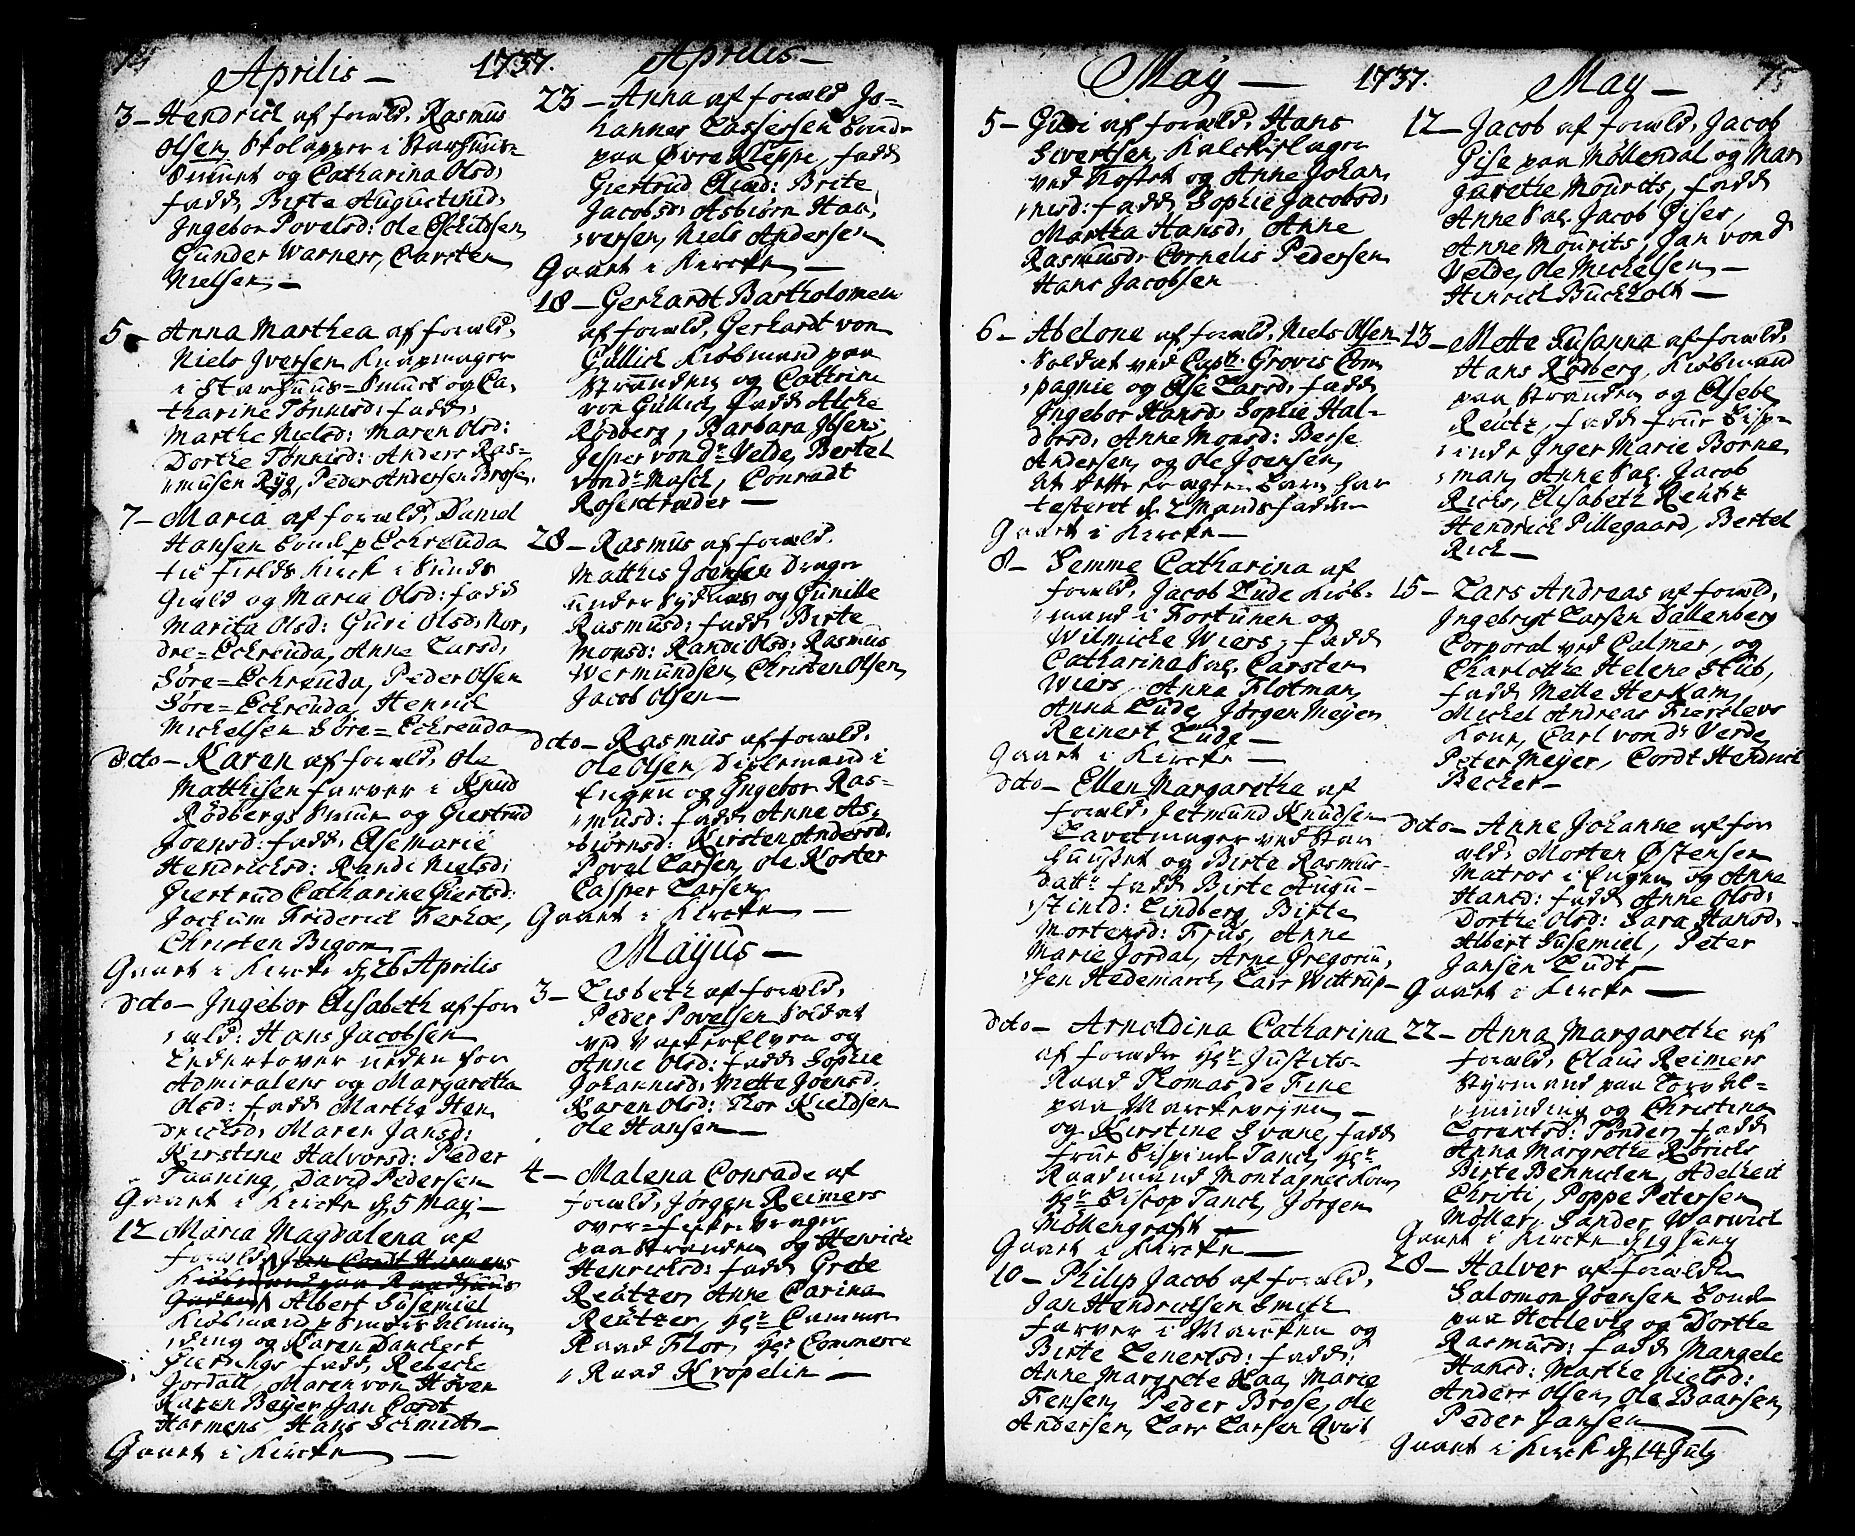 74
Aprilis — 1737.
3 — Hendrich af foræld. Rasmus
Olsen, Skolapper i
og Catharina Olsd.
fadd. Birte Augustinusd.
Ingebor Povelsd: Ole Eskildsen,
Gunder Warners, Carsten
Nielsen, —
5 — Anna Marthea af foræld.
Niels Iversen Knapmager
i Starhuus= og Ca,
tharine Tønnisd. fadd.
Marthe Nielsd: Maren Olsd:
Dorthe Tønnisd: Anders Ras=
musen Ryg, Peder Andersen Brose,
7 — Maria af foræld. Daniel
Hansen bond p Echreuda
til field Kirck i Sunds
Giæld og Maria Olsd: fadd
Marita Olsd: Guri Olsd. Nor,
dre=Echreuda, Anne Larsd,
Søre=Echreuda, Peder Olsen
Søre=Echreuda, Henrich
Mickelsen Søre=Echreuda
dito — Karen af foræld. Ole
Matthisen farver i Knud
Rødbergs Smuur og Giertrud
Joensd: fadd. Else Marie
Hendrichsd: Randi Nielsd:
Giertrud Catharine Giertsd:
Jochum Friderich Ferkoe,
Christen Bigom —
Gaaet i Kircke d. 26 Aprilis
dito — Ingebor Elisabeth af for
æld: Hans Jacobsen
neden for
Admiralens og Margaretha
Olsd: fadd Marthe Hen
drichsd. Maren Jansd:
Kirstine Halvorsd: Peder
Taaning, David Pedersen
Gaaet i Kircke d. 5 May —
12 Maria Magdalena af
foræld. Jan Cordt Harmens
Kiøbmand paa Raadhuus
Gaden Albert Susemiel
Kiøbmand p Smørs Almin
ding og Karen Danckert
Giertsings fadd. Rebecke
Jordatt, Maren von Høven
Karen Beyer Jan Cordt
Harmens Hans Schmidt —
Gaaet i Kircke —
Aprilis —
23 — Anna af foræld Jo=
hannes Lassesen Bond
paa Øvre Kleppe, fadd
Giertrud Elsed: Brite
Jacobsd. Asbiørn Hal,
versen, Niels Andersen
Gaaet i Kircke —
18 — Gerhardt Bartholomeu
af foræld. Gerhardt von
Gullich Kiøbmand paa
Stranden og Cathrine
von Gullich, fadd Alcke
Rødberg, Barbara Ibsens,
Jesper von dr Velde, Bertel
von dr Masch, Conradt
Rosentræder —
28 — Rasmus af foræld.
Matthis Joensen Drager
under Sydnæs og Gunilde
Rasmusd: fadd. Birte
Monsd: Randi Olsd: Rasmus
Wermundsen, Christen Olsen,
Jacob Olsen —
dito — Rasmus af foræld.
Ole Olsen, Dislemand i
Engen og Ingebor Ras=
musd: fadd. Anne As,
biørnsd: Kirsten Andersd.
Povel Larsen, Ole Koster
Casper Larsen,
Gaaet i Kircke —
Mayus —
3 — Lisbeth af foræld.
Peder Povelsen Soldat
ved og
Anne Olsd: fadd Sophie
Johannisd. Mette Joensd.
Karen Olsd: Thor Kieldsen
Ole Hansen —
4 — Malena Conrade af
foræld. Jørgen Reimers
over=fiske Vrager
paa Stranden og Henricke
Henrichsd: fadd Grete
Reutzer, Anne Carina
Reutzer, Hr Cammer
Raad Flor, Hr Commerce
Raad Kropelin —
75
May — 1737.
5 — Guri af foræld. Hans
Sivertsen, Kalckslager
ved Kostet og Anne Johan,
nisd: fadd. Sophie Jacobsd.
Martha Hansd. Anne
Rasmusd. Cornelis Pedersen
Hans Jacobsen
6 — Abelone af foræld. Niels Olsen
Soldat ved Capt: Grovis Com,
pagnie og Else Larsd. fadd
Ingebor Hansd. Sophie Hal=
dorsd. Anne Monsd: Berse
Andersen, og Ole Joensen,
at dette er ægte barn har
testeret d. 2 Mands fadder
Gaaet i Kircke —
8 — Semme Catharina af
foræld. Jacob Lude Kiøb=
mand i Fortunen og
Wilmicke Wiers, fadd
Catharina Sal. Carsten
Wiers, Anna Flotman,
Anna Lude, Jørgen Meyer
Reinert Lude —
Gaaet i Kircke —
dito — Ellen Margarethe af
foræld. Jetmund Knudsen
Lavetmager ved Star
huuset og Birte Rasmus=
datt: fadd Birte Augu=
stinld: Lindberg, Birte
Mortensd: Friis, Anne
Marie Jordal, Arne Gregoriu,
sen Hedemarck, Lars Wittrup —
dito — Arnoldina Catharina
af forældre Hr Justits=
Raad Thomas de Fine
paa Marckeveyen —
og Kirstine Svane, fadd
Frue Bispinde Tanck, Hr
Raadmand Montagnes Kone,
Hr Biscop Tanck, Jørgen
Møllengraft —
Gaaet i Kircke —
10 — Philip Jacob af foræld.
Jan Hendrichsen Smith
farver i Marcken og
Birte Lenertsd: fadd:
Anne Margrete Kaa, Marie
Jensen, Peder Brose, Ole
Andersen, Lars Larsen Qvist
May —
12 — Jacob af foræld. Jacob
Gise paa Møllendal og Mar,
garethe Mourits, fadd
Anne Sal. Jacob Gises,
Anne Mourits, Jan von d
Velde, Ole Michelsen, —
Hinrich Buckholt —
13 — Mette Susanna af foræld.
Hans Rødberg, Kiøbmand
paa Stranden og Elsebe
Reutz, fadd Frue Bisp=
inde Inger Marie Borne
man, Anne Sal. Jacob
Ricks, Elisabeth Reutz
Hendrich Pillegaard, Bertel
Rick —
15 — Lars Andreas af foræld.
Ingebrigt Larsen Dallenberg
Corporal ved Calmer, og
Charlothe Helene Stub,
fadd Mette Herkam,
Michel Andreas Fierslevs
Kone, Carl von dr Verde
Peter Meyer, Cordt Hendrich
Becker —
dito — Anne Johanne af for
æld. Morten Østensen
Matros i Engen og Anne
Hansd: fadd Anne Olsd:
Dorthe Olsd: Sara Hansd.
Albert Susemiel, Peter
Jansen Ludt —
Gaaet i Kircke —
22 — Anna Margarethe af
foræld. Claus Reimers
Styrmand paa Torv al=
minding og Christina
Lorentsd: Tønder, fadd
Anna Margrethe Røricks
Birte Bennichen, Adelheit
Christi, Poppe Petersen
Møller, Sander Warwich
Gaaet i Kircke d. 19 Juny
28 — Halver af forældr
Salomon Joensen Bond
paa Hetlevig og Dorthe
Rasmusd: fadd Mangele
Hansd: Marthe Nielsd:
Anders Olsen, Ole Baarsen,
Peder Jansen —
Gaaet i Kirck d. 14 July